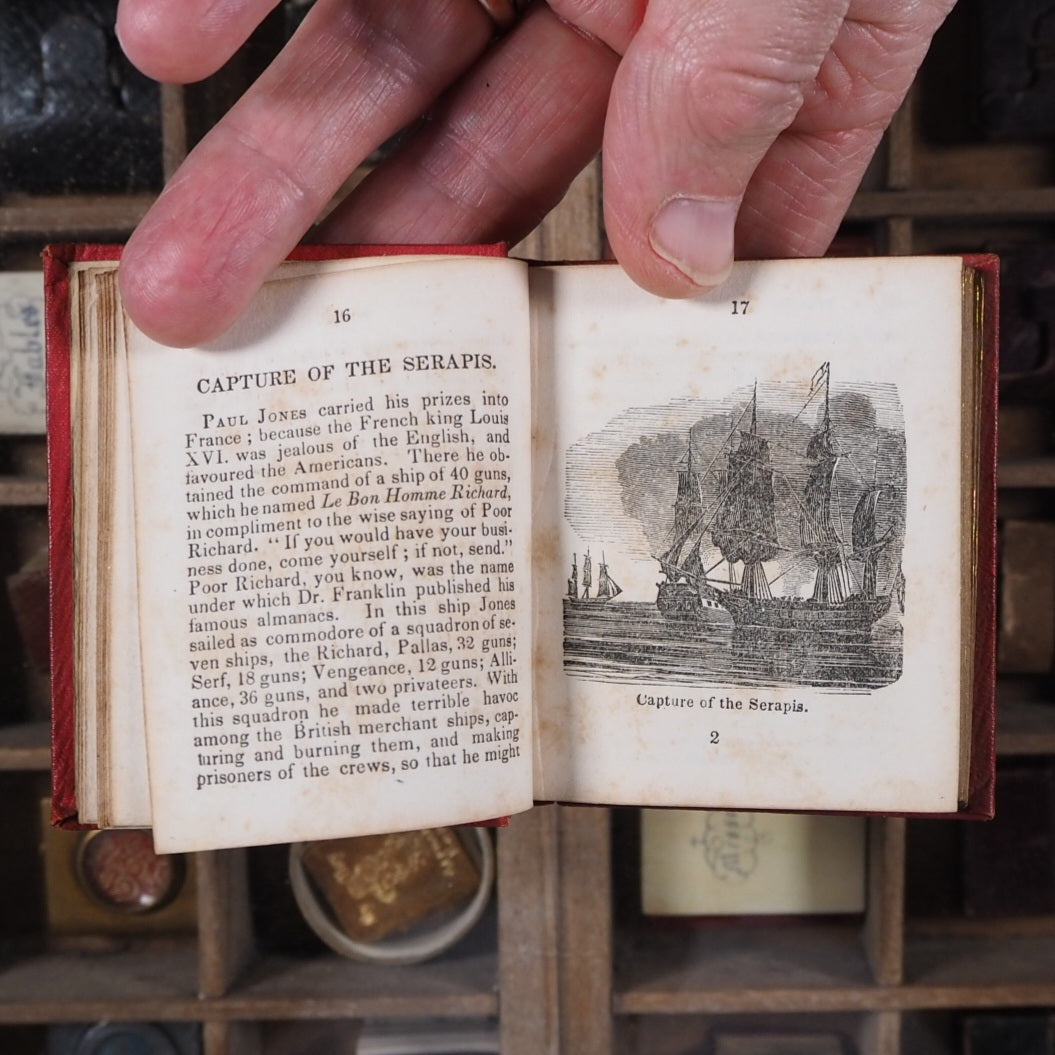 16
CAPTURE OF THE SERAPIS.
PAUL JONES carried his prizes into
France ; because the French king Louis
XVI. was jealous of the English, and
favoured the Americans. There he ob-
tained the command of a ship of 40 guns,
which he named Le Bon Homme Richard,
in compliment to the wise saying of Poor
Richard. “ If you would have your busi-
ness done, come yourself ; if not, send.”
Poor Richard, you know, was the name
under which Dr. Franklin published his
famous almanacs. In this ship Jones
sailed as commodore of a squadron of se-
ven ships, the Richard, Pallas, 32 guns;
Serf, 18 guns; Vengeance, 12 guns; Alli-
ance, 36 guns, and two privateers. With
this squadron he made terrible havoc
among the British merchant ships, cap-
turing and burning them, and making
prisoners of the crews, so that he might
17
Capture of the Serapis.
2